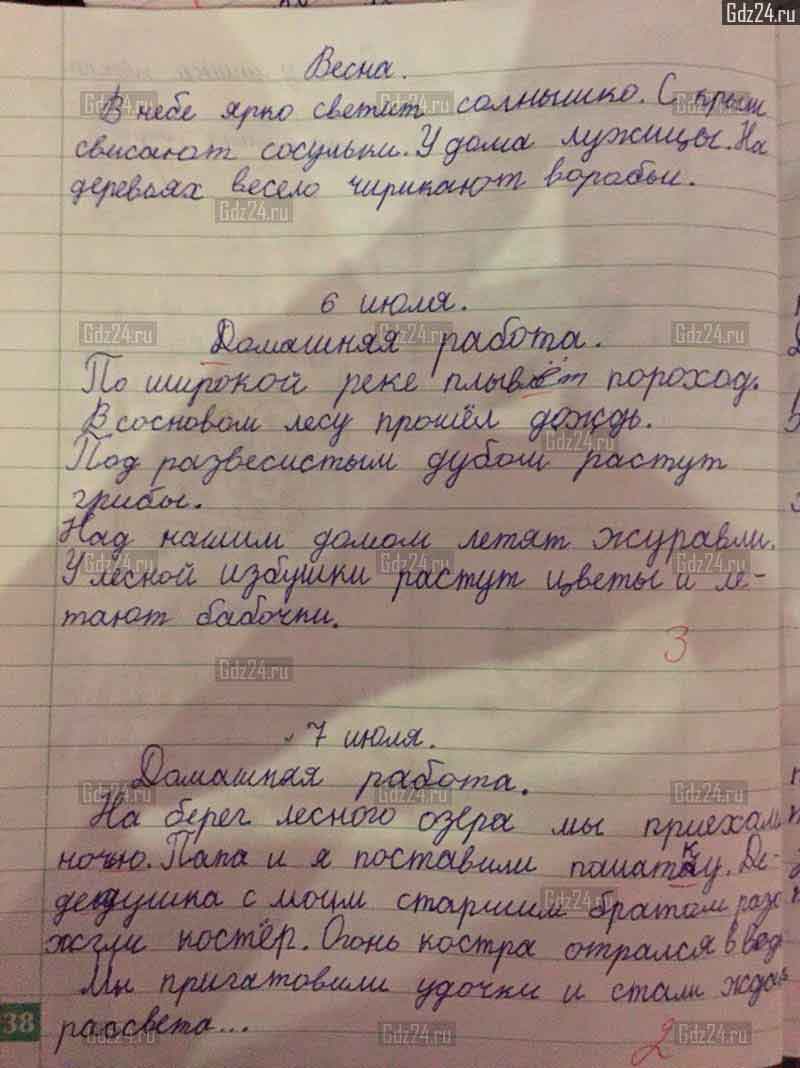 Gdz24.ru
Весна.
В небе ярко светит солнышко. С крыш
свисают сосульки. У дома лужицы. На
деревьях весело чирикают воробьи.
6 июля.
Домашняя работа.
По широкой реке плывёт пороход.
В сосновом лесу прошёл дождь.
Под развесистым дубом растут
грибы.
Над нашим домом летят журавли.
У лесной избушки растут цветы и ле-
тают бабочки.
3
7 июля.
Домашняя работа.
На берег лесного озера мы приехали
ночю. Папа и я поставили палатку. Де-
душка с моим старшим братом раз
жгли костёр. Огонь костра отрался в вод
Мы пригатовили удочки и стали ждать
рассвета...
38
2